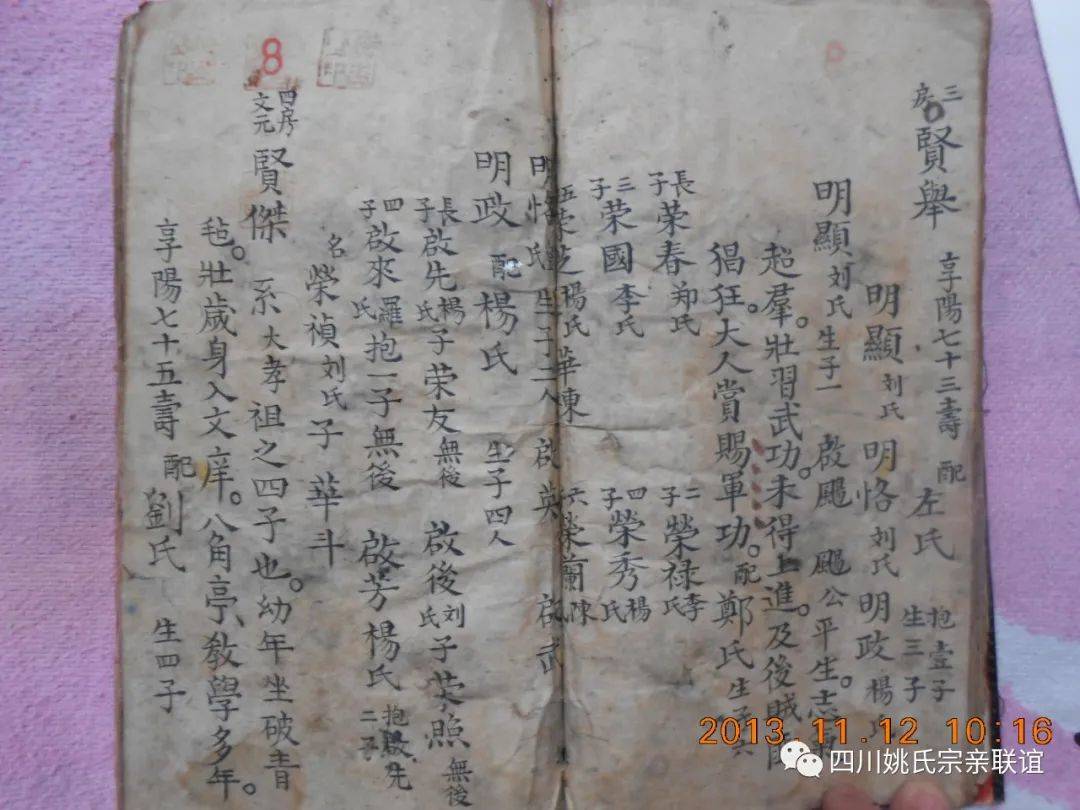 三房 賢舉 享陽七十三壽 配左氏 抱壹子 生三子
明顯刘氏 明恪刘氏 明政楊氏
明顯刘氏 生子一 啟颺 颺公平生志
超羣。壯習武功。未得上進。及後賊
猖狂。大人賞賜軍功。配鄭氏 生子
長子荣春郑氏 二子榮禄李氏
三子荣國李氏 四子榮秀楊氏
五荣芝楊氏 華東 六榮蘭陳
明恪 氏 生子二人 啟英 啟武
明政 配楊氏 生子四人
長子啟先楊氏 子荣友無後 啟後刘氏 子荣照無後
四子啟來羅氏 抱一子無後 啟芳楊氏 抱啟先二子
名榮禎刘氏 子華斗
四房文元 賢傑 系大孝祖之四子也。幼年坐破青
毡。壯歲身入文庠。八角亭、教學多年。
享陽七十五壽 配劉氏 生四子
8
2013.11.12 10:16
四川姚氏宗亲联谊